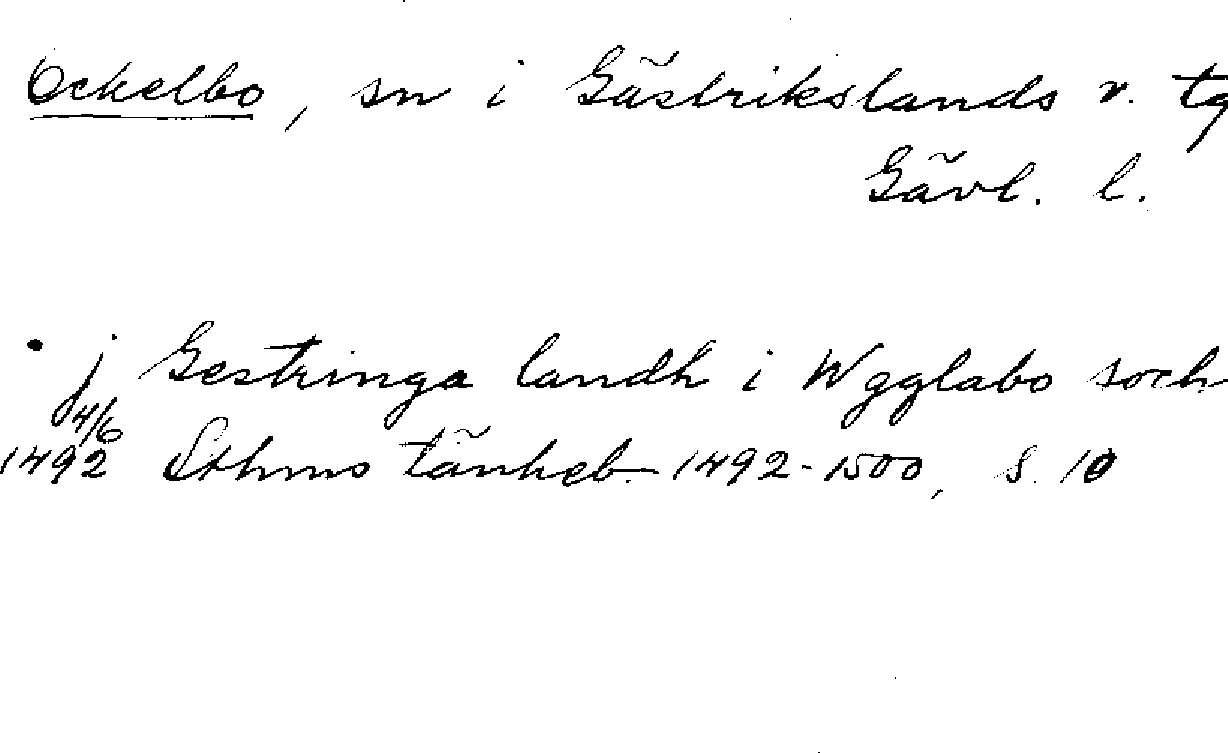 Ockelbo, sn i Gästrikslands v. tg
Gävl. l.
j Gestringa landh i Wgglabo soch
4/6
1492 Sthms tänkeb. 1492-1500, s. 10